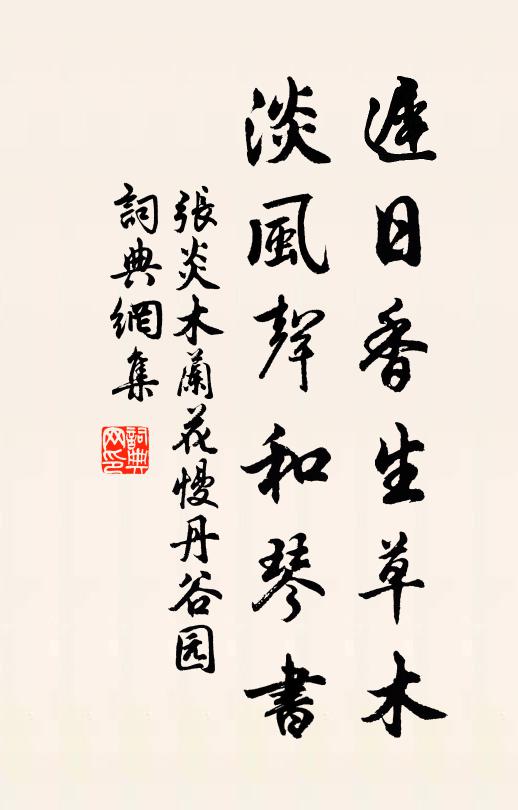 遲日香生草木
淡風聲和琴書
張炎木蘭花慢丹谷园
詞典網集
詞典网印